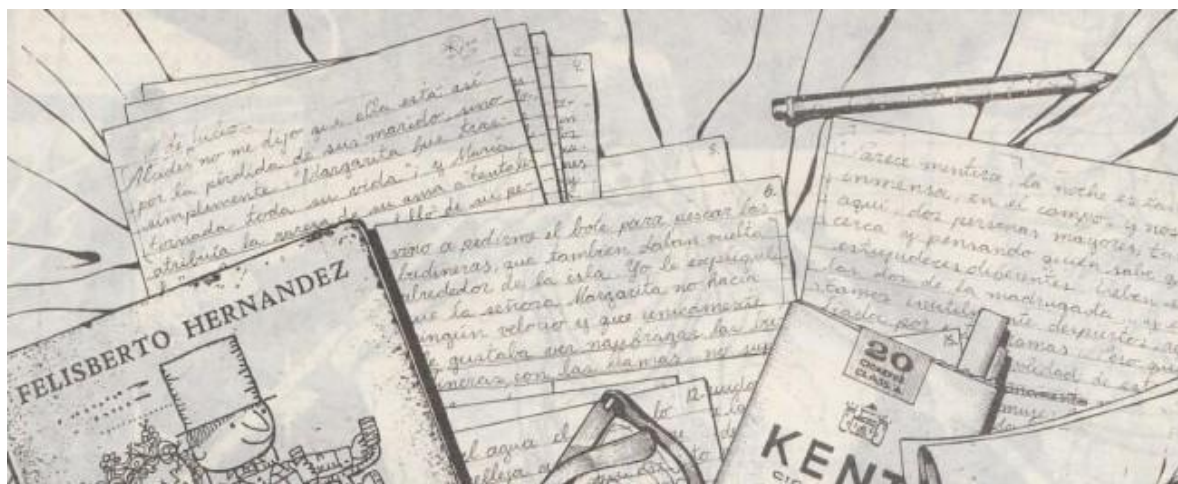 2.
4.
de Lucio.
Alcides no me dijo que ella está así
por la pérdida de su marido sino
simplemente: "Margarita fue tras-
tornada toda su vida"; y María
atribuía la rareza de su ama a
5.
6.
vino a pedirme el bote para pescar las
budineras, que también daban vuelta
alrededor de la isla. Yo le expliqué
que la señora Margarita no hacía
ningún velorio y que únicamente
le gustaba ver naufragar las bu
dineras con las llamas, no
12.
el agua el
Parece mentira, la noche es tan
inmensa, en el campo, y nos
aquí, dos personas mayores, tan
cerca y pensando quién sabe qu
estupideces diferentes. Deben s
las dos de la madrugada y e
despiertos
por
llamas
soledad de
15.
FELISBERTO HERNANDEZ
20
CLASS A
KENT